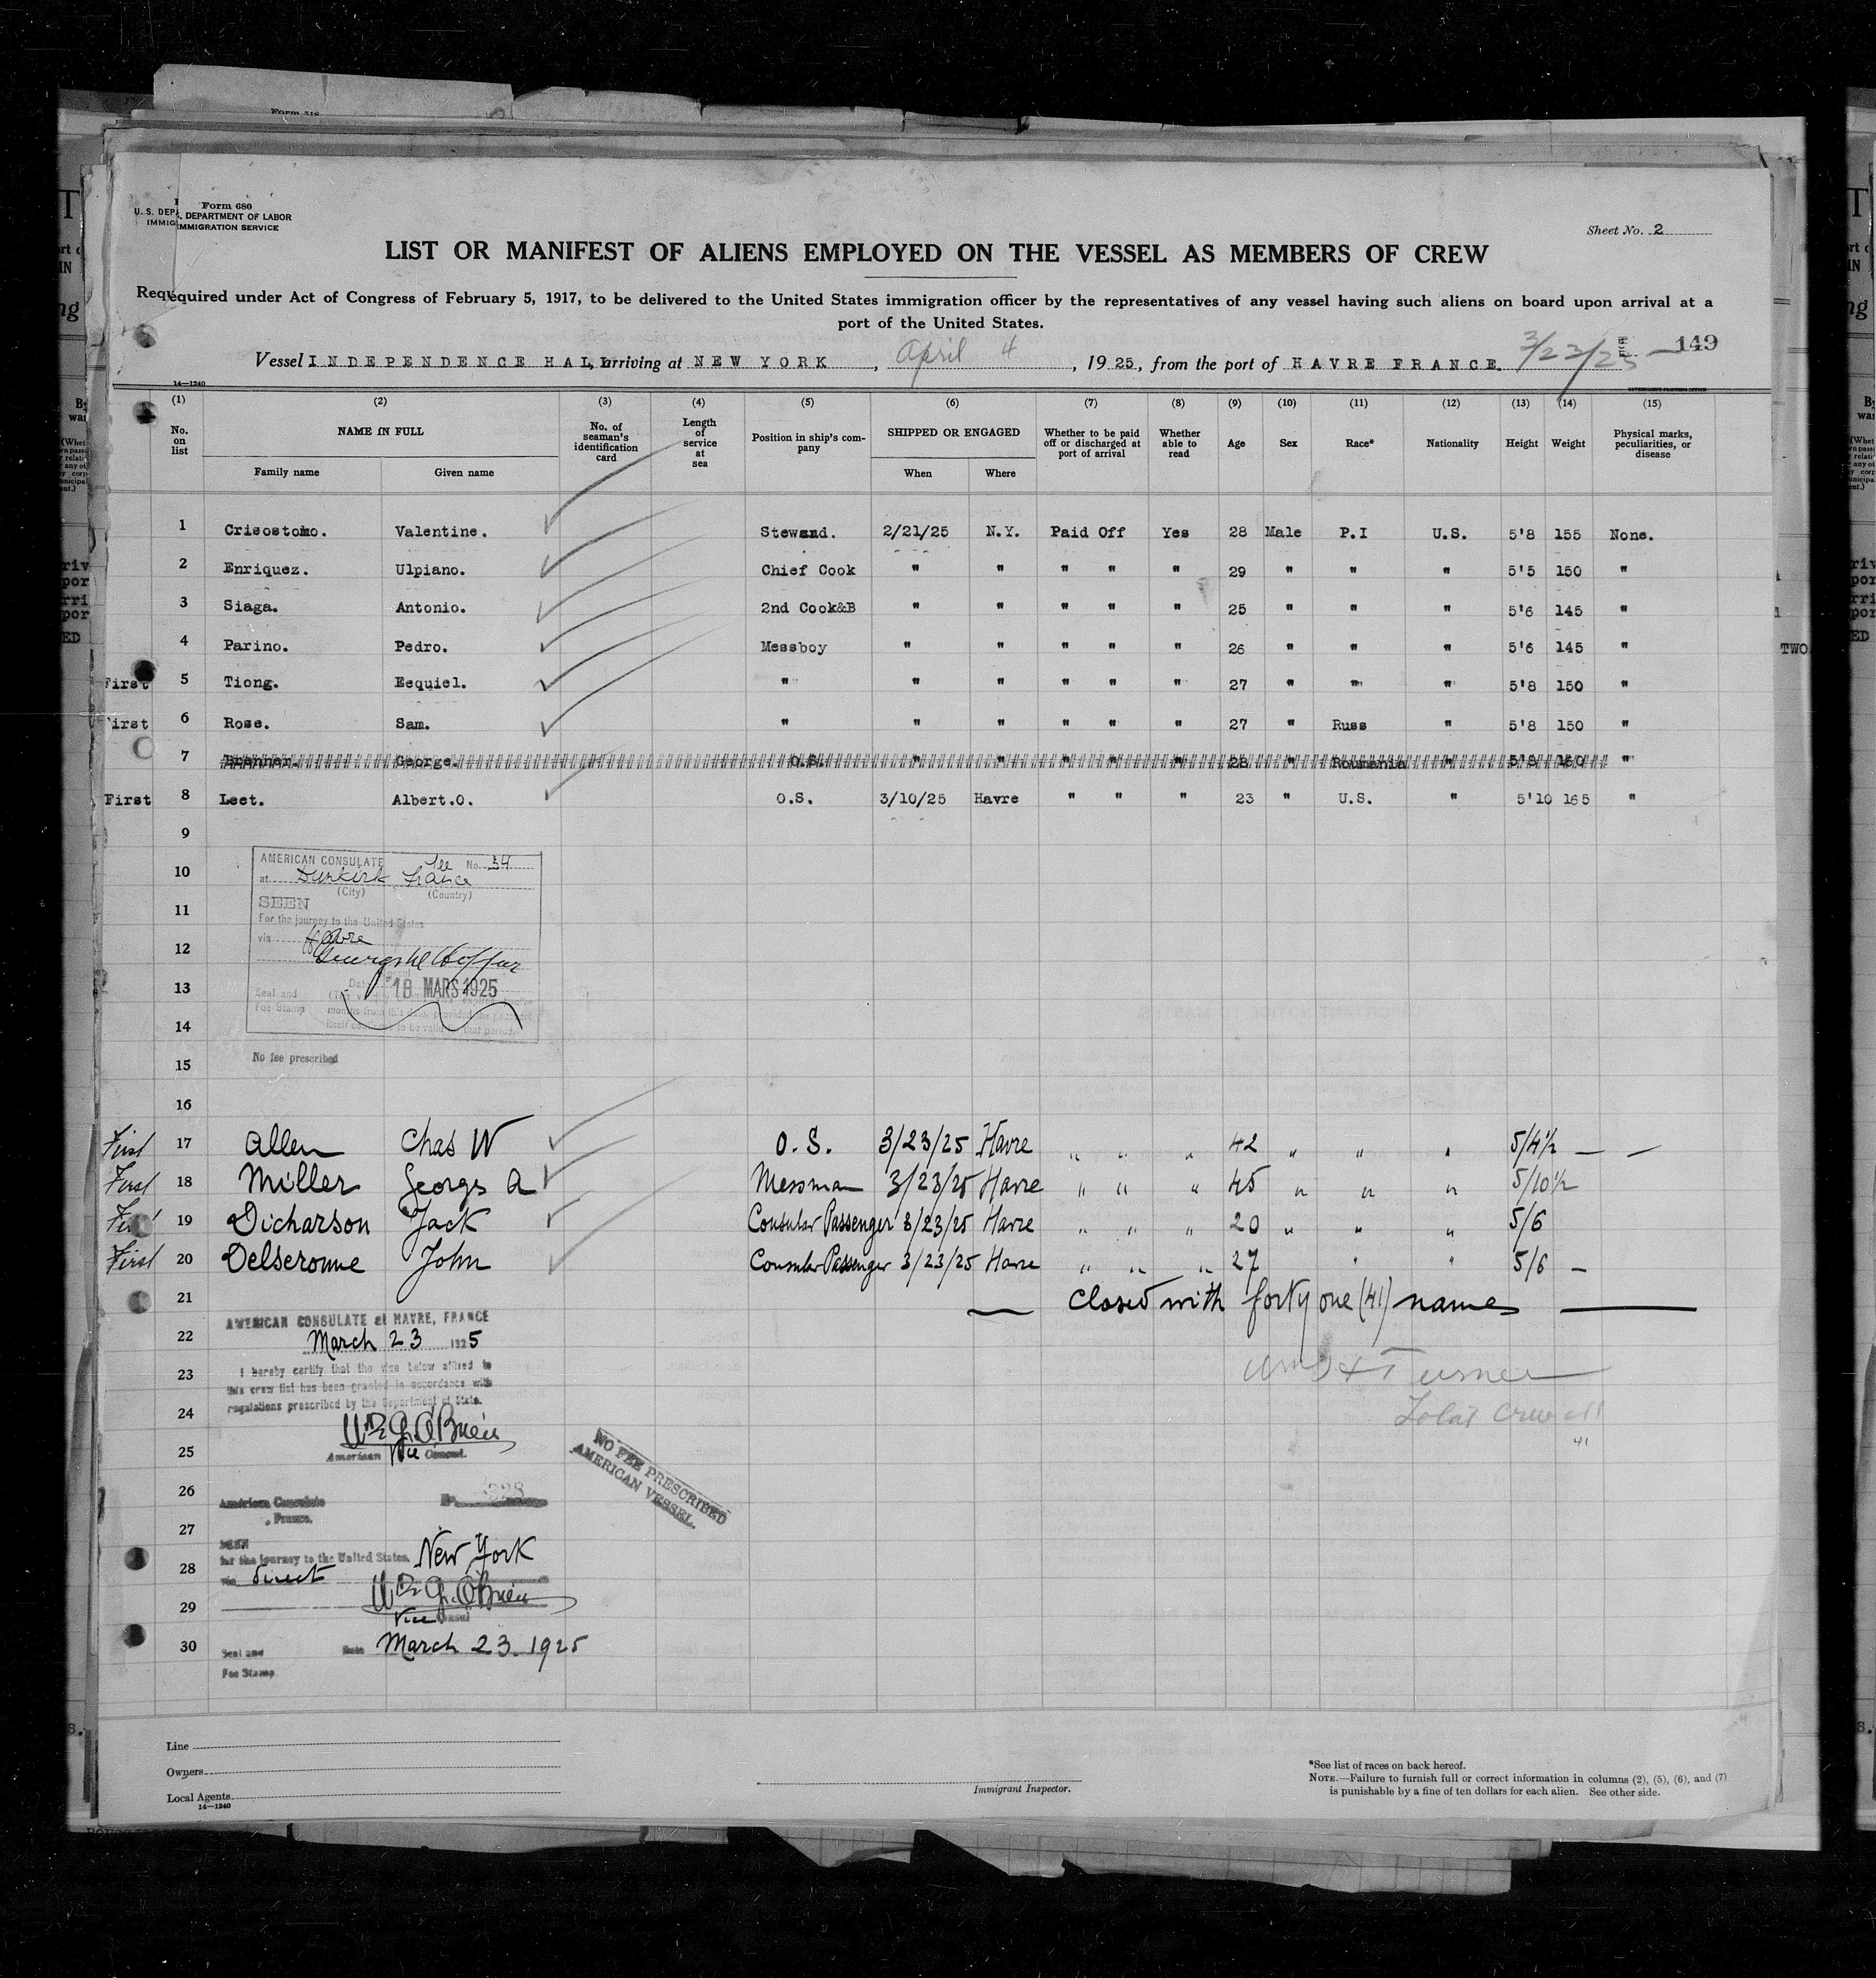 Form 680
U. S. DEPARTMENT OF LABOR
IMMIGRATION SERVICE
Sheet No. 2
LIST OR MANIFEST OF ALIENS EMPLOYED ON THE VESSEL AS MEMBERS OF CREW
Required under Act of Congress of February 5, 1917, to be delivered to the United States immigration officer by the representatives of any vessel having such aliens on board upon arrival at a
port of the United States.
Vessel INDEPENDENCE HALL, arriving at NEW YORK, April 4, 1925, from the port of HAVRE FRANCE. 3/23/25 149
14—1240
(1) (2) (3) (4) (5) (6) (7) (8) (9) (10) (11) (12) (13) (14) (15)
No. on list NAME IN FULL No. of seaman's identification card Length of service at sea Position in ship's company SHIPPED OR ENGAGED Whether to be paid off or discharged at port of arrival Whether able to read Age Sex Race* Nationality Height Weight Physical marks, peculiarities, or disease
Family name Given name When Where
1 Crisostomo. Valentine. Steward. 2/21/25 N.Y. Paid Off Yes 28 Male P.I U.S. 5'8 155 None.
2 Enriquez. Ulpiano. Chief Cook " " " " " 29 " " " 5'5 150 "
3 Siaga. Antonio. 2nd Cook&B " " " " " 25 " " " 5'6 145 "
4 Parino. Pedro. Messboy " " " " " 26 " " " 5'6 145 "
First 5 Tiong. Eequiel. " " " " " " 27 " " " 5'8 150 "
First 6 Rose. Sam. " " " " " " 27 " Russ " 5'8 150 "
7 Brenner. George. O.S. " " " " " 28 " Roumania " 5'8 160 "
First 8 Leet. Albert.O. O.S. 3/10/25 Havre " " " 23 " U.S. " 5'10 165 "
9
10
11
12
13
14
15
16
AMERICAN CONSULATE No. 34
at Dunkirk, France
(City) (Country)
SEEN
For the journey to the United States
via Havre
Date 18 MARS 1925
Seal and
Fee Stamp
No fee prescribed
First 17 Allen Chas W O.S. 3/23/25 Havre " " " 42 " " " 5/4½ — —
First 18 Miller George A Messman 3/23/25 Havre " " " 45 " " " 5/10½
First 19 Dicharson Jack Consular Passenger 3/23/25 Havre " " " 20 " " " 5/6
First 20 Delseronne John Consular Passenger 3/23/25 Havre " " " 27 " " 5/6 —
21 — Closed with forty one (41) names —
22
23
24
25
26
27
28
29
30
AMERICAN CONSULATE at HAVRE, FRANCE
March 23 1925
I hereby certify that the vise below affixed to
this crew list has been granted in accordance with
regulations prescribed by the Department of State.
Wm. G. O'Brien
American Vice Consul.
Turner
Total Crew 41
41
NO FEE PRESCRIBED
AMERICAN VESSEL.
American Consulate
France.
328
SEEN
for the journey to the United States. New York
via direct
Wm. G. O'Brien
Vice Consul
Seal and Date March 23. 1925
Fee Stamp
Line
Owners
Local Agents
14—1240
Immigrant Inspector.
*See list of races on back hereof.
NOTE.—Failure to furnish full or correct information in columns (2), (5), (6), and (7)
is punishable by a fine of ten dollars for each alien. See other side.